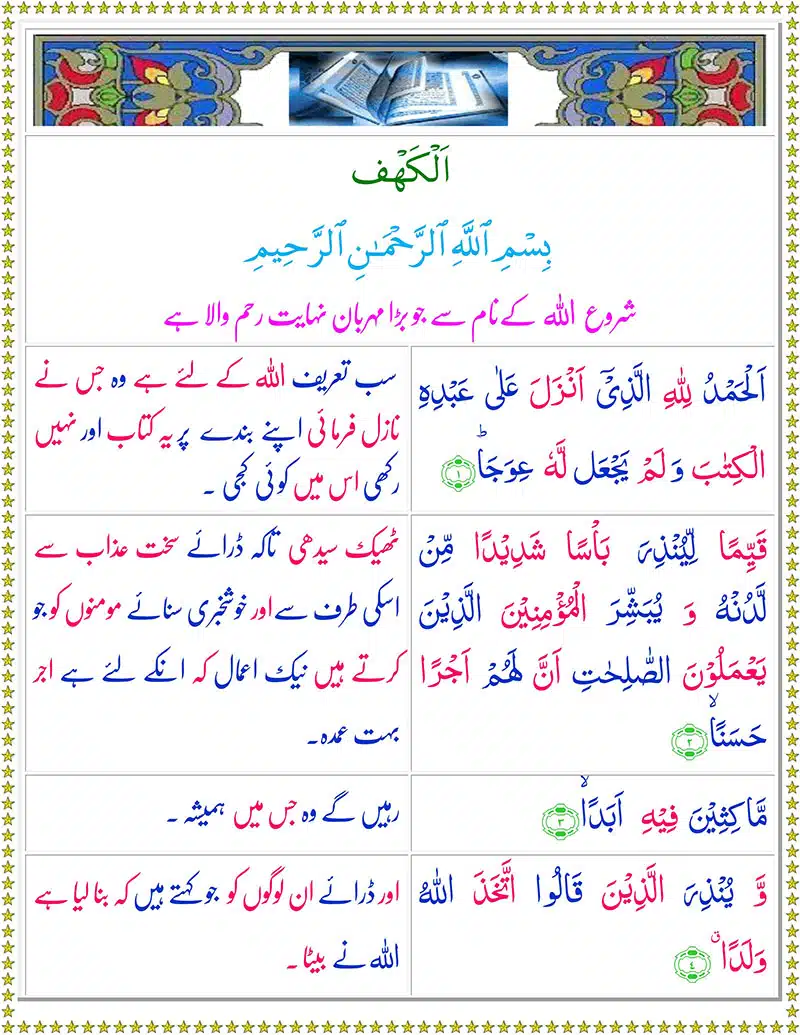 اَلْكَهْف
بِسْمِ ٱللَّهِ ٱلرَّحْمَـٰنِ ٱلرَّحِيمِ
شروع الله کے نام سے جو بڑا مہربان نہایت رحم والا ہے
اَلْحَمْدُ لِلّٰهِ الَّذِیْۤ اَنْزَلَ عَلٰی عَبْدِهِ
الْكِتٰبَ وَ لَمْ یَجْعَلْ لَّهٗ عِوَجًاؕ ۱
سب تعریف الله کے لئے ہے وہ جس نے
نازل فرمائی اپنے بندے پر یہ کتاب اور نہیں
رکھی اس میں کوئی کجی ۔
قَیِّمًا لِّیُنْذِرَ بَاْسًا شَدِیْدًا مِّنْ
لَّدُنْهُ وَ یُبَشِّرَ الْمُؤْمِنِیْنَ الَّذِیْنَ
یَعْمَلُوْنَ الصّٰلِحٰتِ اَنَّ لَهُمْ اَجْرًا
حَسَنًاۙ ۲
ٹھیک سیدھی تاکہ ڈرائے سخت عذاب سے
اسکی طرف سے اور خوشخبری سنائے مومنوں کو جو
کرتے ہیں نیک اعمال کہ انکے لئے ہے اجر
بہت عمدہ۔
مَّاكِثِیْنَ فِیْهِ اَبَدًاۙ ۳
رہیں گے وہ جس میں ہمیشہ ۔
وَّ یُنْذِرَ الَّذِیْنَ قَالُوا اتَّخَذَ اللّٰهُ
وَلَدًاۗ ٤
اور ڈرائے ان لوگوں کو جو کہتے ہیں کہ بنا لیا ہے
الله نے بیٹا ۔